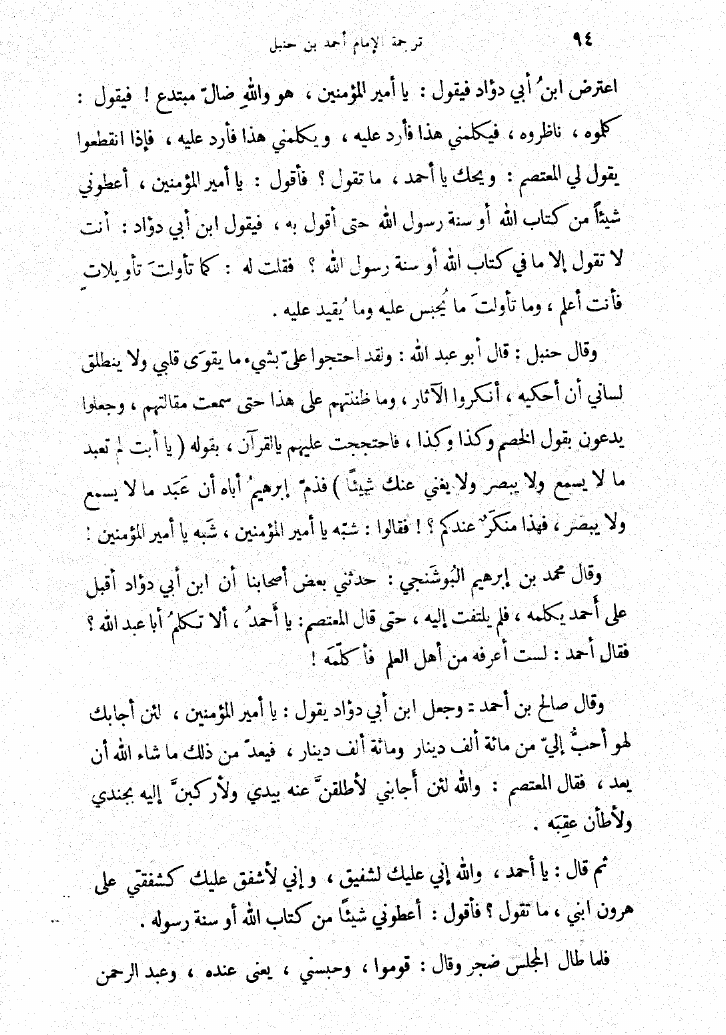 ٩٤ ترجمة الإمام أحمد بن حنبل
اعترض ابنُ أبي دؤاد فيقول : يا أمير المؤمنين ، هو واللهِ ضالّ مبتدع ! فيقول :
كلموه ، ناظروه ، فيكلمني هذا فأرد عليه ، ويكلمني هذا فأرد عليه ، فإذا انقطعوا
يقول لي المعتصم : ويحك يا أحمد ، ما تقول ؟ فأقول : يا أمير المؤمنين ، أعطوني
شيئاً من كتاب الله أو سنة رسول الله حتى أقول به ، فيقول ابن أبي دؤاد : أنت
لا تقول إلا ما في كتاب الله أو سنة رسول الله ؟ فقلت له : كما تأولتَ تأويلاتٍ
فأنت أعلم ، وما تأولتَ ما يُحبس عليه وما يُقيد عليه .
وقال حنبل : قال أبو عبد الله : ونقد احتجوا عليّ بشيء ما يقوَى قلبي ولا ينطلق
لساني أن أحكيه ، أنكروا الآثار ، وما ظننتهم على هذا حتى سمعت مقالتهم ، وجعلوا
يدعون بقول الخصم وكذا وكذا ، فاحتججت عليهم بالقرآن ، بقوله ( يا أبت لم تعبد
ما لا يسمع ولا يبصر ولا يغني عنك شيئًا ) فذمّ إبرهيمُ أباه أن عَبَد ما لا يسمع
ولا يبصر ، فهذا منكَرٌ عندكم ؟ ! فقالوا : شبّه يا أمير المؤمنين ، شَبه يا أمير المؤمنين !
وقال محمد بن إبرهيم البُوشَنجي : حدثني بعض أصحابنا أن ابن أبي دؤاد أقبل
على أَحمد يكلمه ، فلم يلتفت إليه ، حتى قال المعتصم : يا أَحمدُ ، ألا تكلمُ أبا عبد الله ؟
فقال أحمد : لست أعرفه من أهل العلم فأكلّمَه !
وقال صالح بن أحمد : وجعل ابن أبي دؤاد يقول : يا أمير المؤمنين ، لئن أجابك
لهو أحبُّ إليّ من مائة ألف دينار ومائة ألف دينار ، فيعدّ من ذلك ما شاء الله أن
يعد ، فقال المعتصم : والله لئن أَجابني لأطلقنَّ عنه بيدي ولأركبنَّ إليه بجندي
ولأطأن عقِبَه .
ثم قال : يا أحمد ، والله إني عليك لشفيق ، وإني لأشفق عليك كشفقتي على
هرون ابني ، ما تقول ؟ فأقول : أعطوني شيئًا من كتاب الله أو سنة رسوله .
فلما طال المجلس ضجر وقال : قوموا ، وحبسني ، يعنى عنده ، وعبد الرحمن